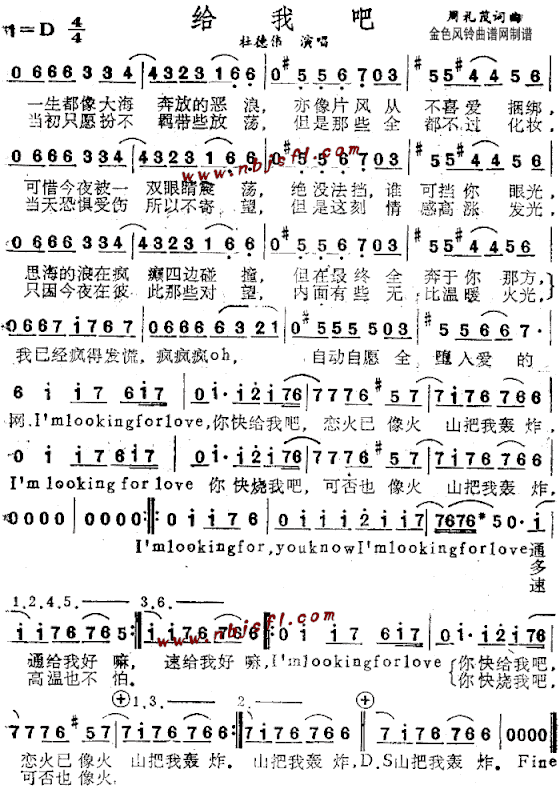 给我吧
周礼茂词曲
1=D 4/4
金色风铃曲谱网制谱
杜德伟 演唱
0 666 334 | 4323 1 6 6 | 0 #5 5 6 703 | 55 #4 4 56 |
一生都像大海 奔放的恶浪, 亦像片风从 不喜爱捆绑,
当初只愿扮不 羁带些放荡, 但是那些全 都不过化妆,
0666 6 334 | 4323 1 6 6 | 0 #5 5 6 703 | 55 #4 4 56 |
www.nbjsfl.com
可惜今夜被一 双眼睛震荡, 绝没法挡,谁 可挡你眼光,
当天恐惧受伤 所以不寄望, 但是这刻情 感高涨发光,
0666 6 334 | 4323 1 6 6 | 0 #5 5 6 703 | 55 #4 4 56 |
思海的浪在疯 癫四边碰撞, 但在最终全 奔于你那方,
只因今夜在彼 此那些对望, 内面有些无 比温暖火光,
0667 i767 | 0666 6 6321 | 0 #555 503 | #55667· |
我已经疯得发慌,疯疯疯oh, 自动自愿全 堕入爱的
6 i i7 6i7 | 0i·i2i76 | 7776 #57 | 7·i7676 |
网.I'mlookingforlove,你快给我吧, 恋火已像火 山把我轰炸,
0 i i7 6i7 | 0i·i2i76 | 7776 #57 | 7·i7676 |
I'm looking for love 你快烧我吧,可否也像火 山把我轰炸,
0000 | 0000 :‖: 0 i i7 6 | 0 i i i2 i i7 | 7676 #50· i |
I'mlookingfor,youknowI'mlookingforlove通
多
速
1,2,4,5, 3,6.
i i76 765 :‖ i i76 766 :‖: 0 i i7 6i7 | 0i·i2i76 |
www.nbjsfl.com
通给我好嘛, 速给我好嘛,I'mlookingforlove 你快给我吧,
高温也不怕. 你快烧我吧,
1,3. 2.
7776 #57 | 7·i76 766 :‖ 7·i76 766 ‖ 7·i76 766 | 0000 ‖
恋火已像火 山把我轰炸。 山把我轰炸,D.S山把我轰炸。 Fine
可否也像火,